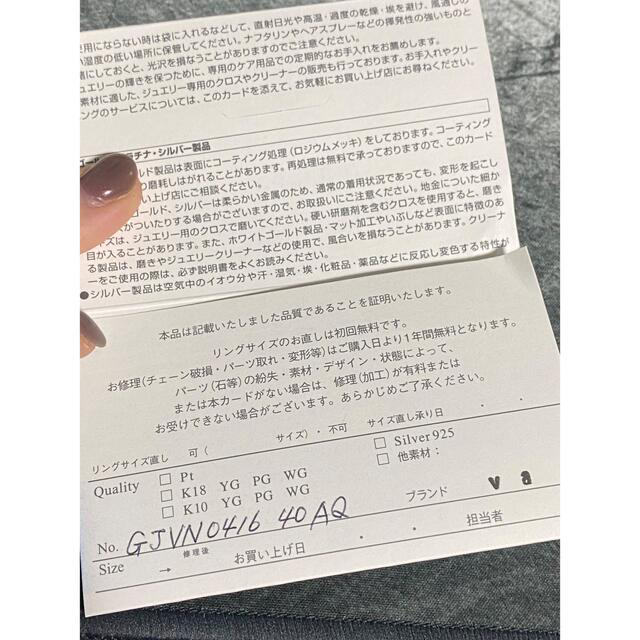 使用にならない時は袋に入れるなどして、直射日光や高温・過度の乾燥・埃を避け、風通しの
湿度の低い場所に保管してください。ナフタリンやヘアスプレーなどの揮発性の強いものと
緒にしておくと、光沢を損なうことがありますのでご注意ください。
ジュエリーの輝きを保つために、専用のケア用品での定期的なお手入れをお薦めします。
素材に適した、ジュエリー専用のクロスやクリーナーの販売も行っております。お手入れやクリー
ングのサービスについては、このカードを添えて、お気軽にお買い上げ店にお尋ねください。
チナ・シルバー製品
ルド製品は表面にコーティング処理(ロジウムメッキ)をしております。コーティング
り磨耗しはがれることがあります。再処理は無料で承っておりますので、このカード
い上げ店にご相談ください。
ゴールド、シルバーは柔らかい金属のため、通常の着用状況であっても、変形を起こし
ズがついたりする場合がございますので、お取扱いにご注意ください。地金についた細か
ズは、ジュエリー用のクロスで磨いてください。硬い研磨剤を含むクロスを使用すると、磨き
目が入ることがあります。また、ホワイトゴールド製品・マット加工やいぶしなど表面に特徴のあ
る製品は、磨きやジュエリークリーナーなどの使用で、風合いを損なうことがあります。クリーナ
ーをご使用の際は、必ず説明書をよくお読みください。
●シルバー製品は空気中のイオウ分や汗・湿気・埃・化粧品・薬品などに反応し変色する特性が
本品は記載いたしました品質であることを証明いたします。
リングサイズのお直しは初回無料です。
お修理(チェーン破損・パーツ取れ・変形等)はご購入日より1年間無料となります。
パーツ(石等)の紛失・素材・デザイン・状態によって、
または本カードがない場合は、修理(加工)が有料または
お受けできない場合がございます。あらかじめご了承ください。
リングサイズ直し 可( サイズ)・不可 サイズ直し承り日 ・ ・
Quality □ Pt □ Silver925
□ K18 YG PG WG □ 他素材:
□ K10 YG PG WG
No. GJVN0416 40AQ ブランド va
Size → 修理後 お買い上げ日 ・ ・ 担当者